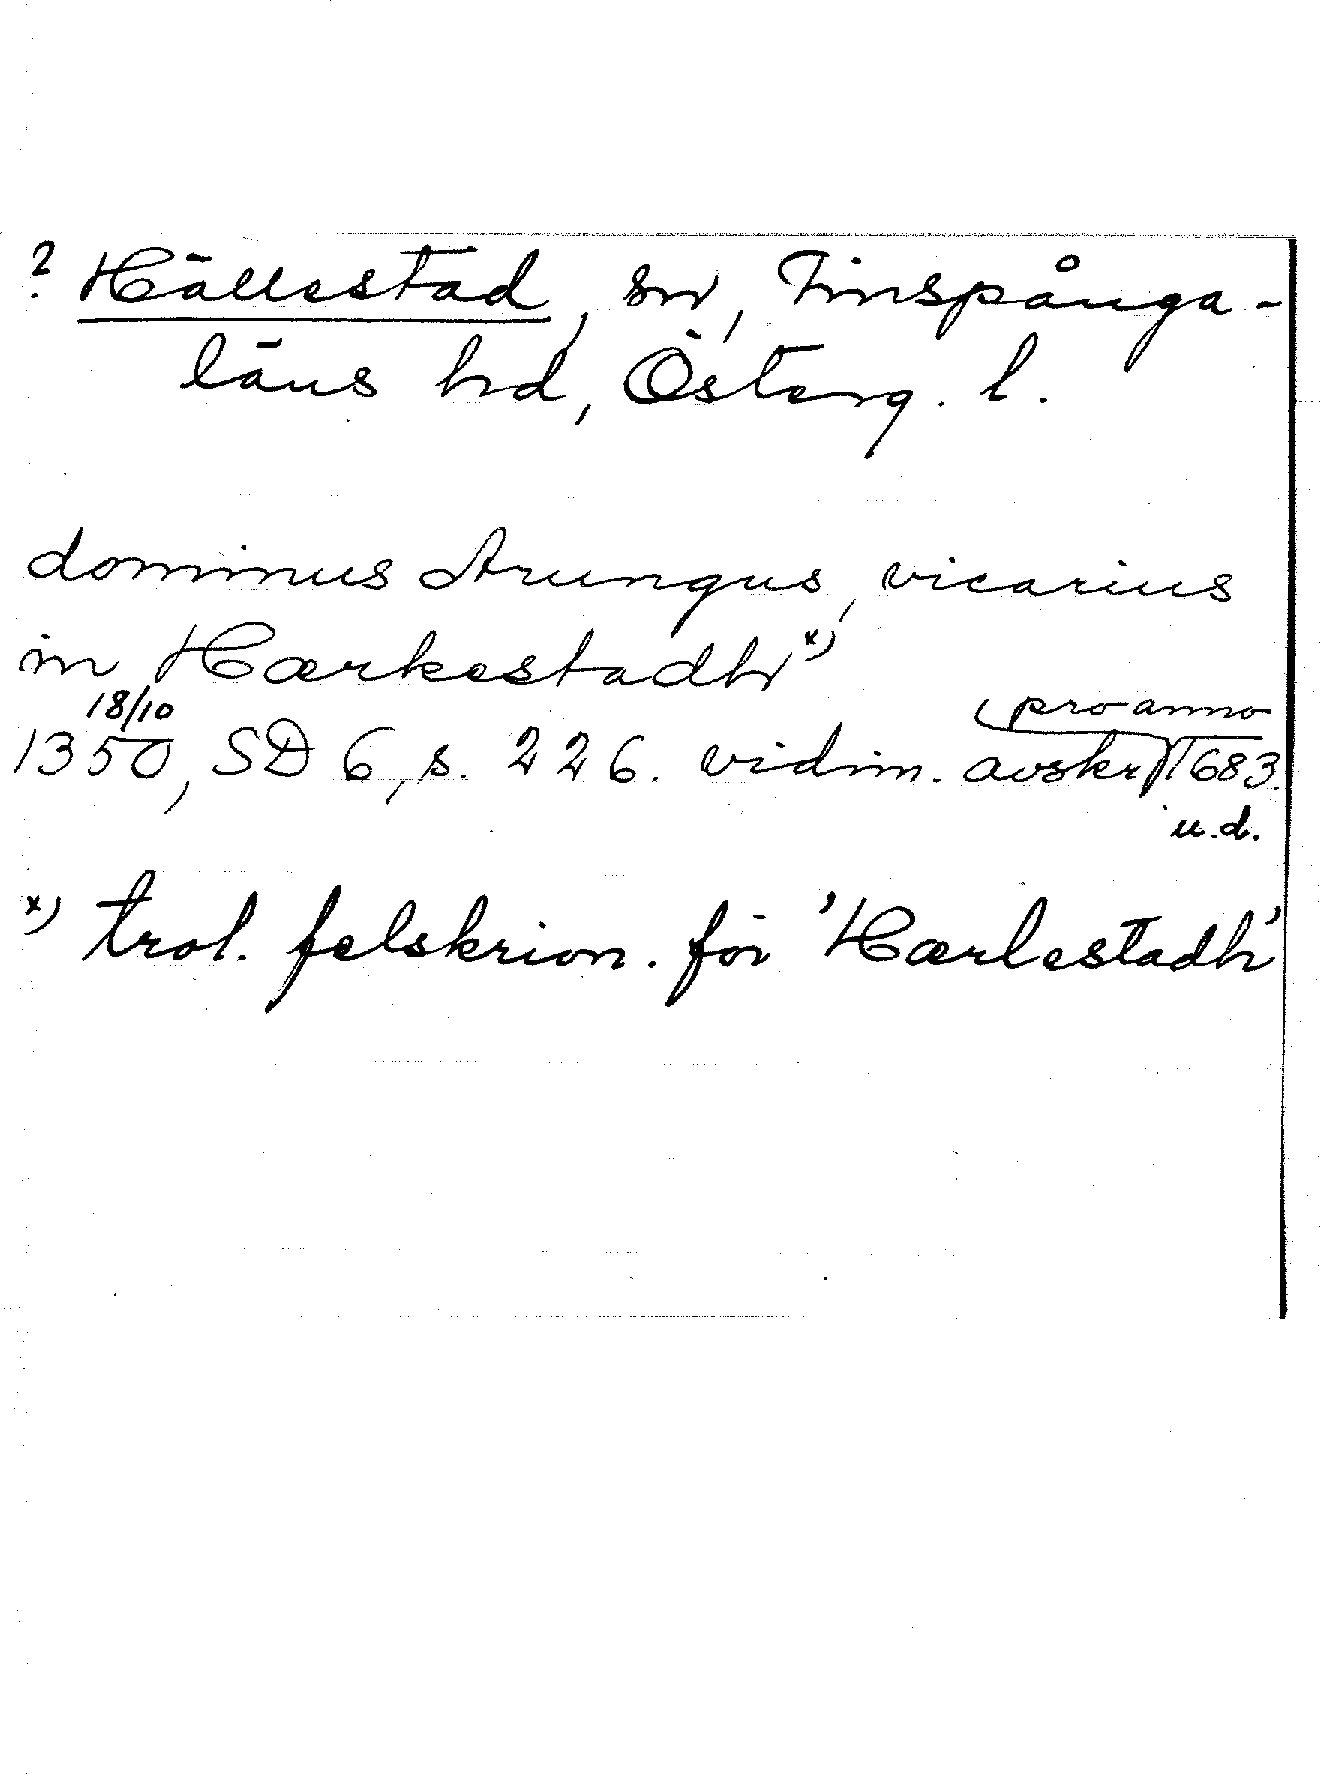 ? Hällestad, sn, Finspånga-
läns hd, Österg. l.
dominus Arungus, vicarius
in Hærkestadh x)
18/10
1350, SD 6, s. 226. vidim. avskr (pro anno) 1683.
u.d.
x) trol. felskrivn. för 'Hærlestadh'